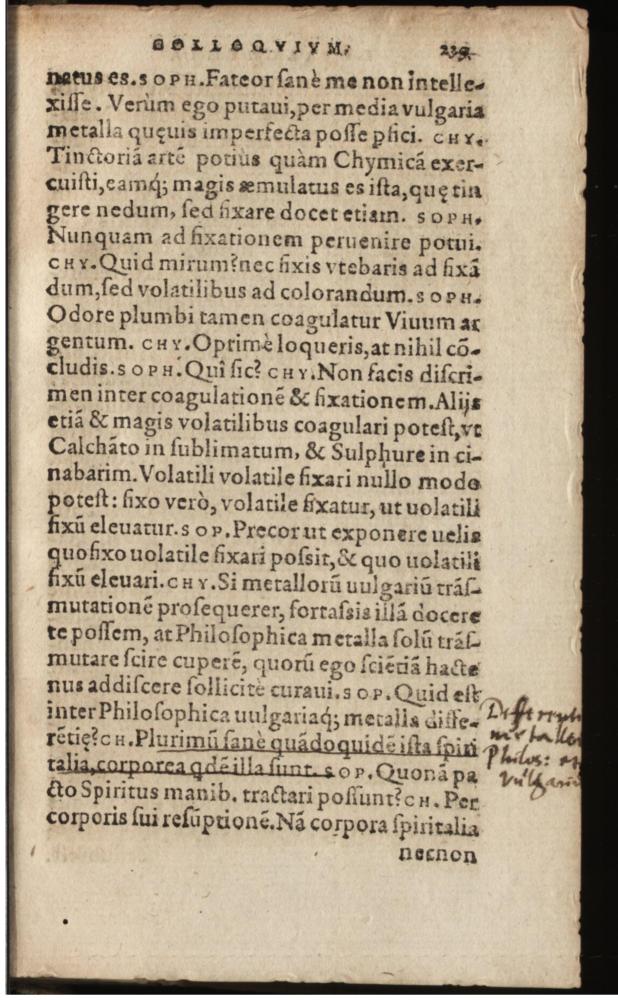 COLLOQVIVM. 239
natus es. SOPH. Fateor sanè me non intelle-
xisse. Verùm ego putaui, per media vulgaria
metalla quęuis imperfecta posse ꝑfici. CHY.
Tinctoriā artē potius quàm Chymicā exer-
cuisti, eamq́; magis æmulatus es ista, quę tin
gere nedum, sed fixare docet etiam. SOPH.
Nunquam ad fixationem peruenire potui.
CHY. Quid mirum? nec fixis vtebaris ad fixā
dum, sed volatilibus ad colorandum. SOPH.
Odore plumbi tamen coagulatur Viuum ar
gentum. CHY. Optimè loqueris, at nihil cō-
cludis. SOPH. Quî sic? CHY. Non facis discri-
men inter coagulationē & fixationem. Alijs
etiā & magis volatilibus coagulari potest, vt
Calchāto in sublimatum, & Sulphure in ci-
nabarim. Volatili volatile fixari nullo modo
potest: fixo verò, volatile fixatur, ut uolatili
fixū eleuatur. SOP. Precor ut exponere uelis
quo fixo uolatile fixari possit, & quo uolatili
fixū eleuari. CHY. Si metallorū uulgariū trās-
mutationē prosequerer, fortassis illā docere
te possem, at Philosophica metalla solū trās-
mutare scire cuperē, quorū ego sciētiā hacte
nus addiscere sollicitè curaui. SOP. Quid est
inter Philosophica uulgariaq́; metalla diffe-
rētię? CH. Plurimū sanè quādoquidē ista spiri
talia, corporea qdē illa sunt. SOP. Quonā pa
cto Spiritus manib. tractari possunt? CH. Per
corporis sui resūptionē. Nā corpora spiritalia
necnon
Differenti
metallor
Philos: et
vulgarium